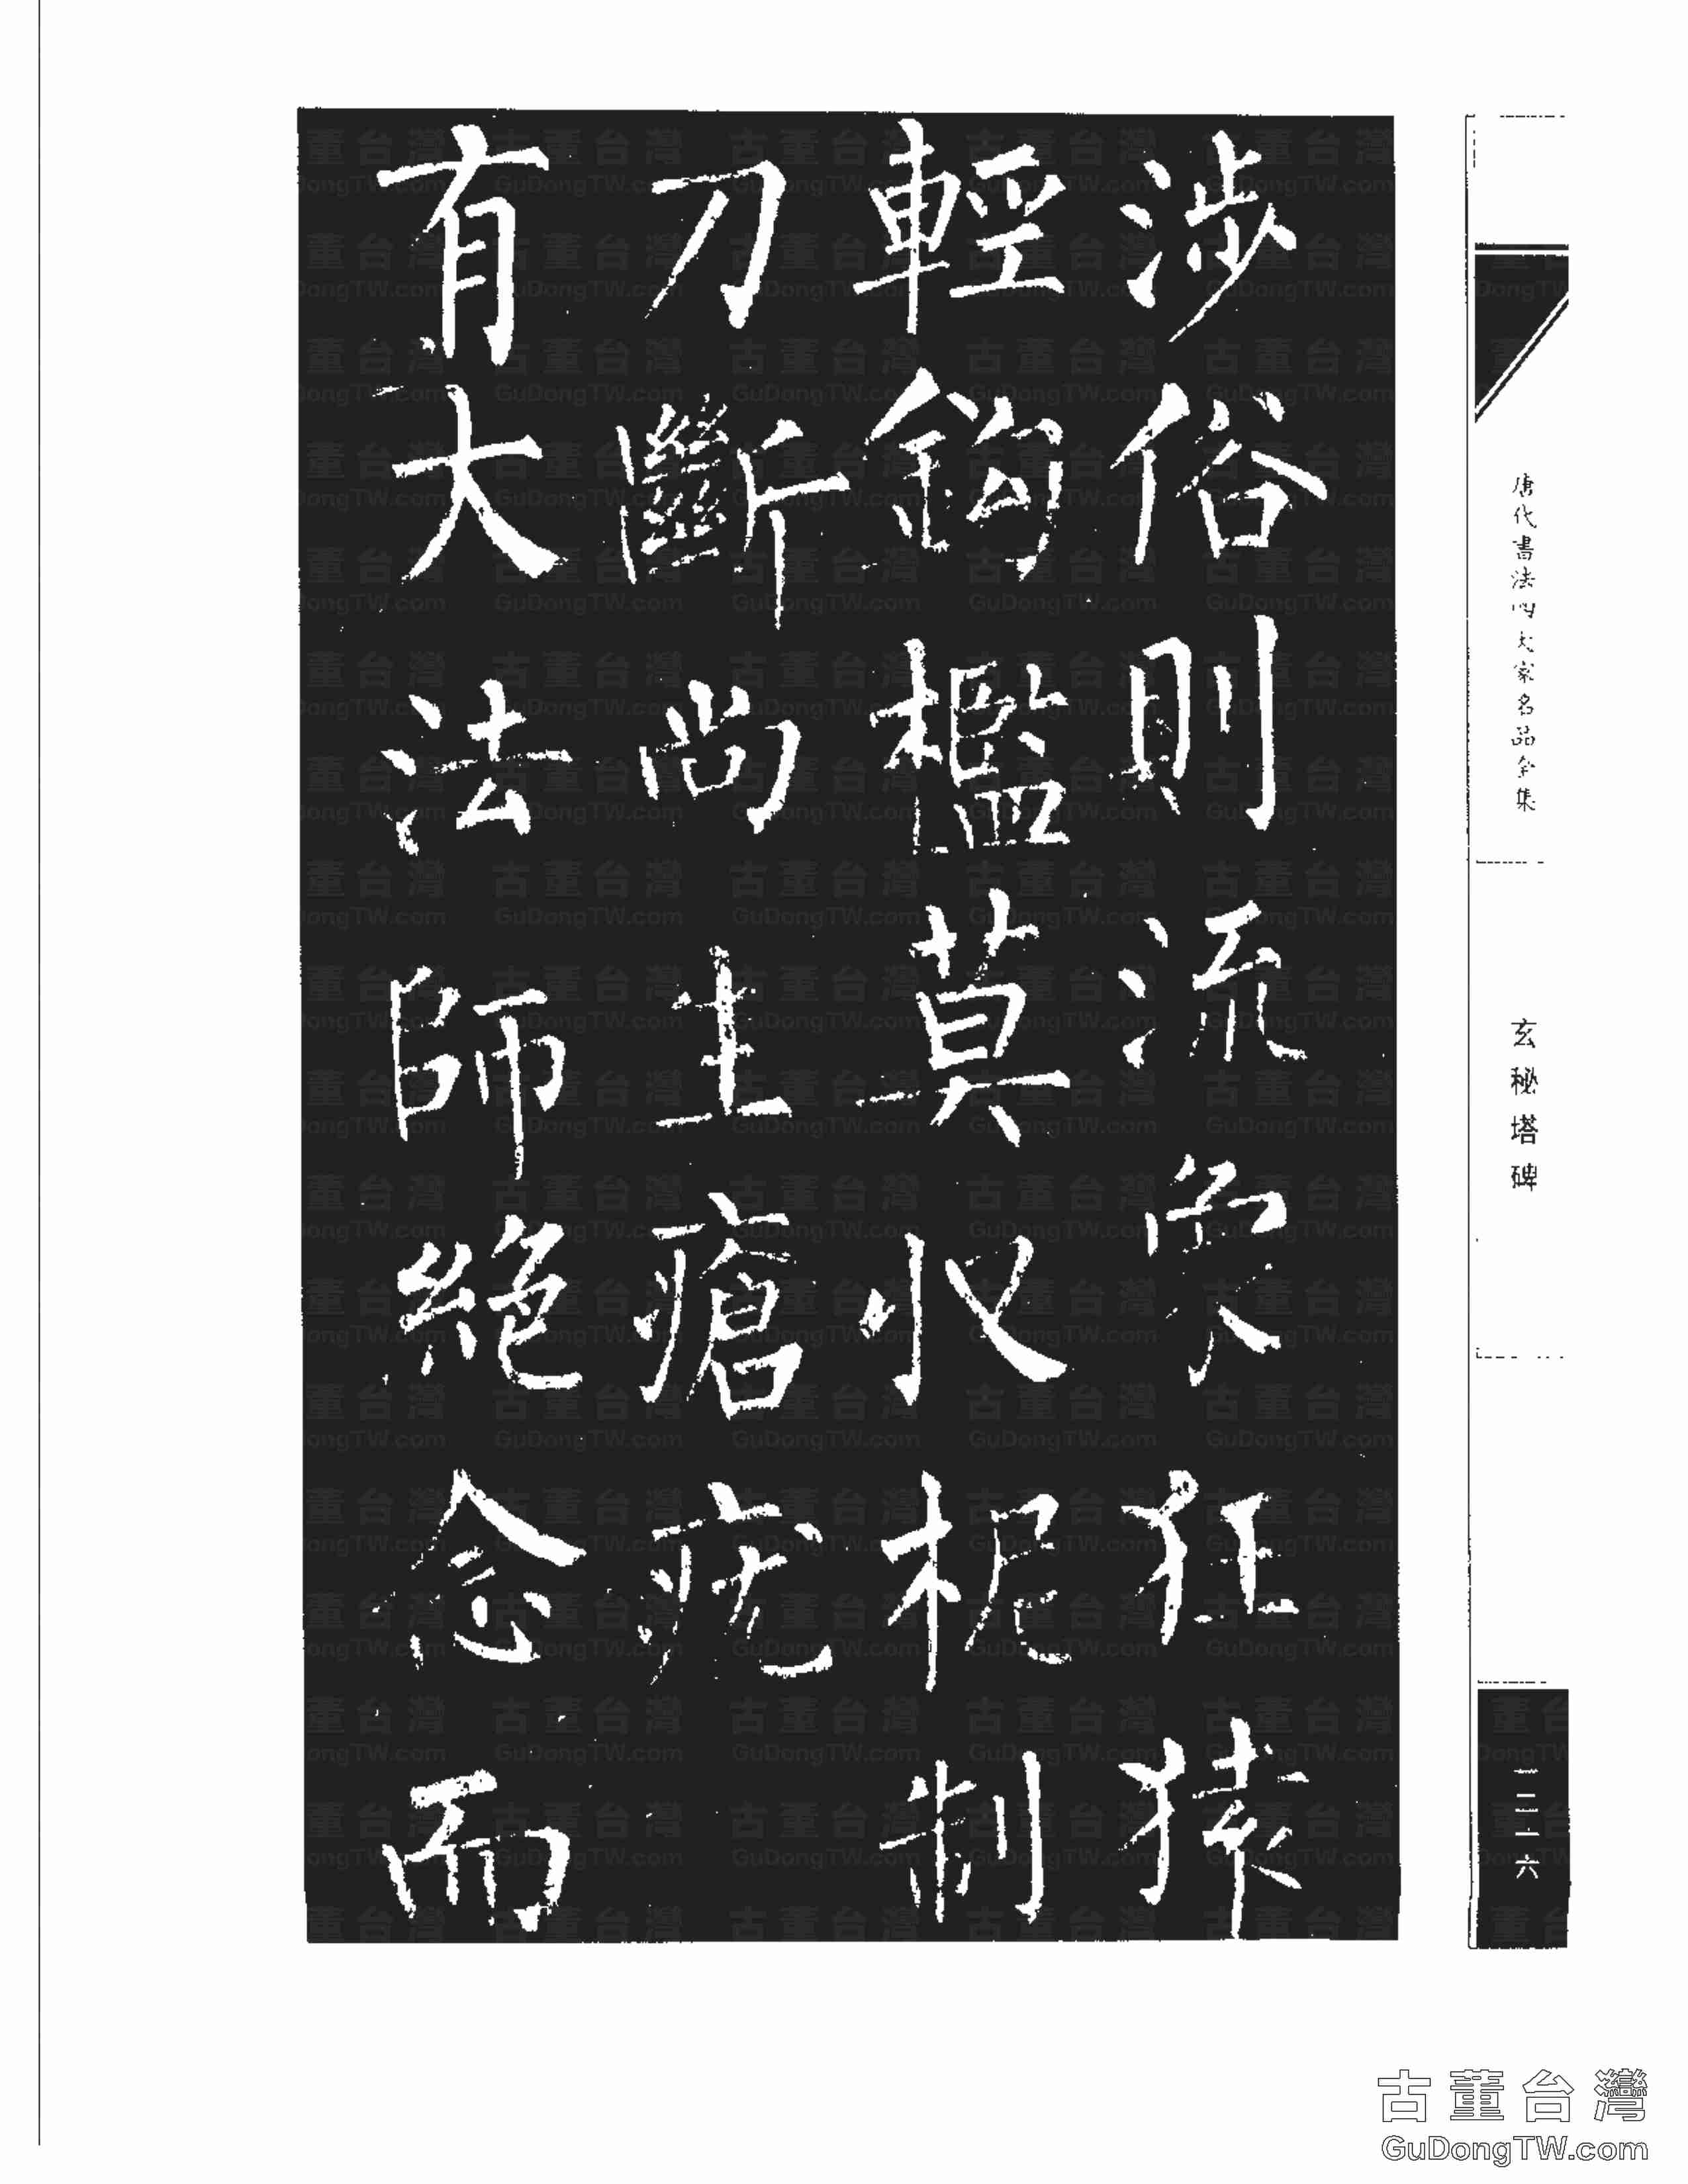 涉俗則流象狂猿
輕鈎檻莫收柅制
刀斷尚生瘡疣
有大法師絕念而
唐代書法四大家名品全集
玄秘塔碑
古董台灣
GuDongTW.com